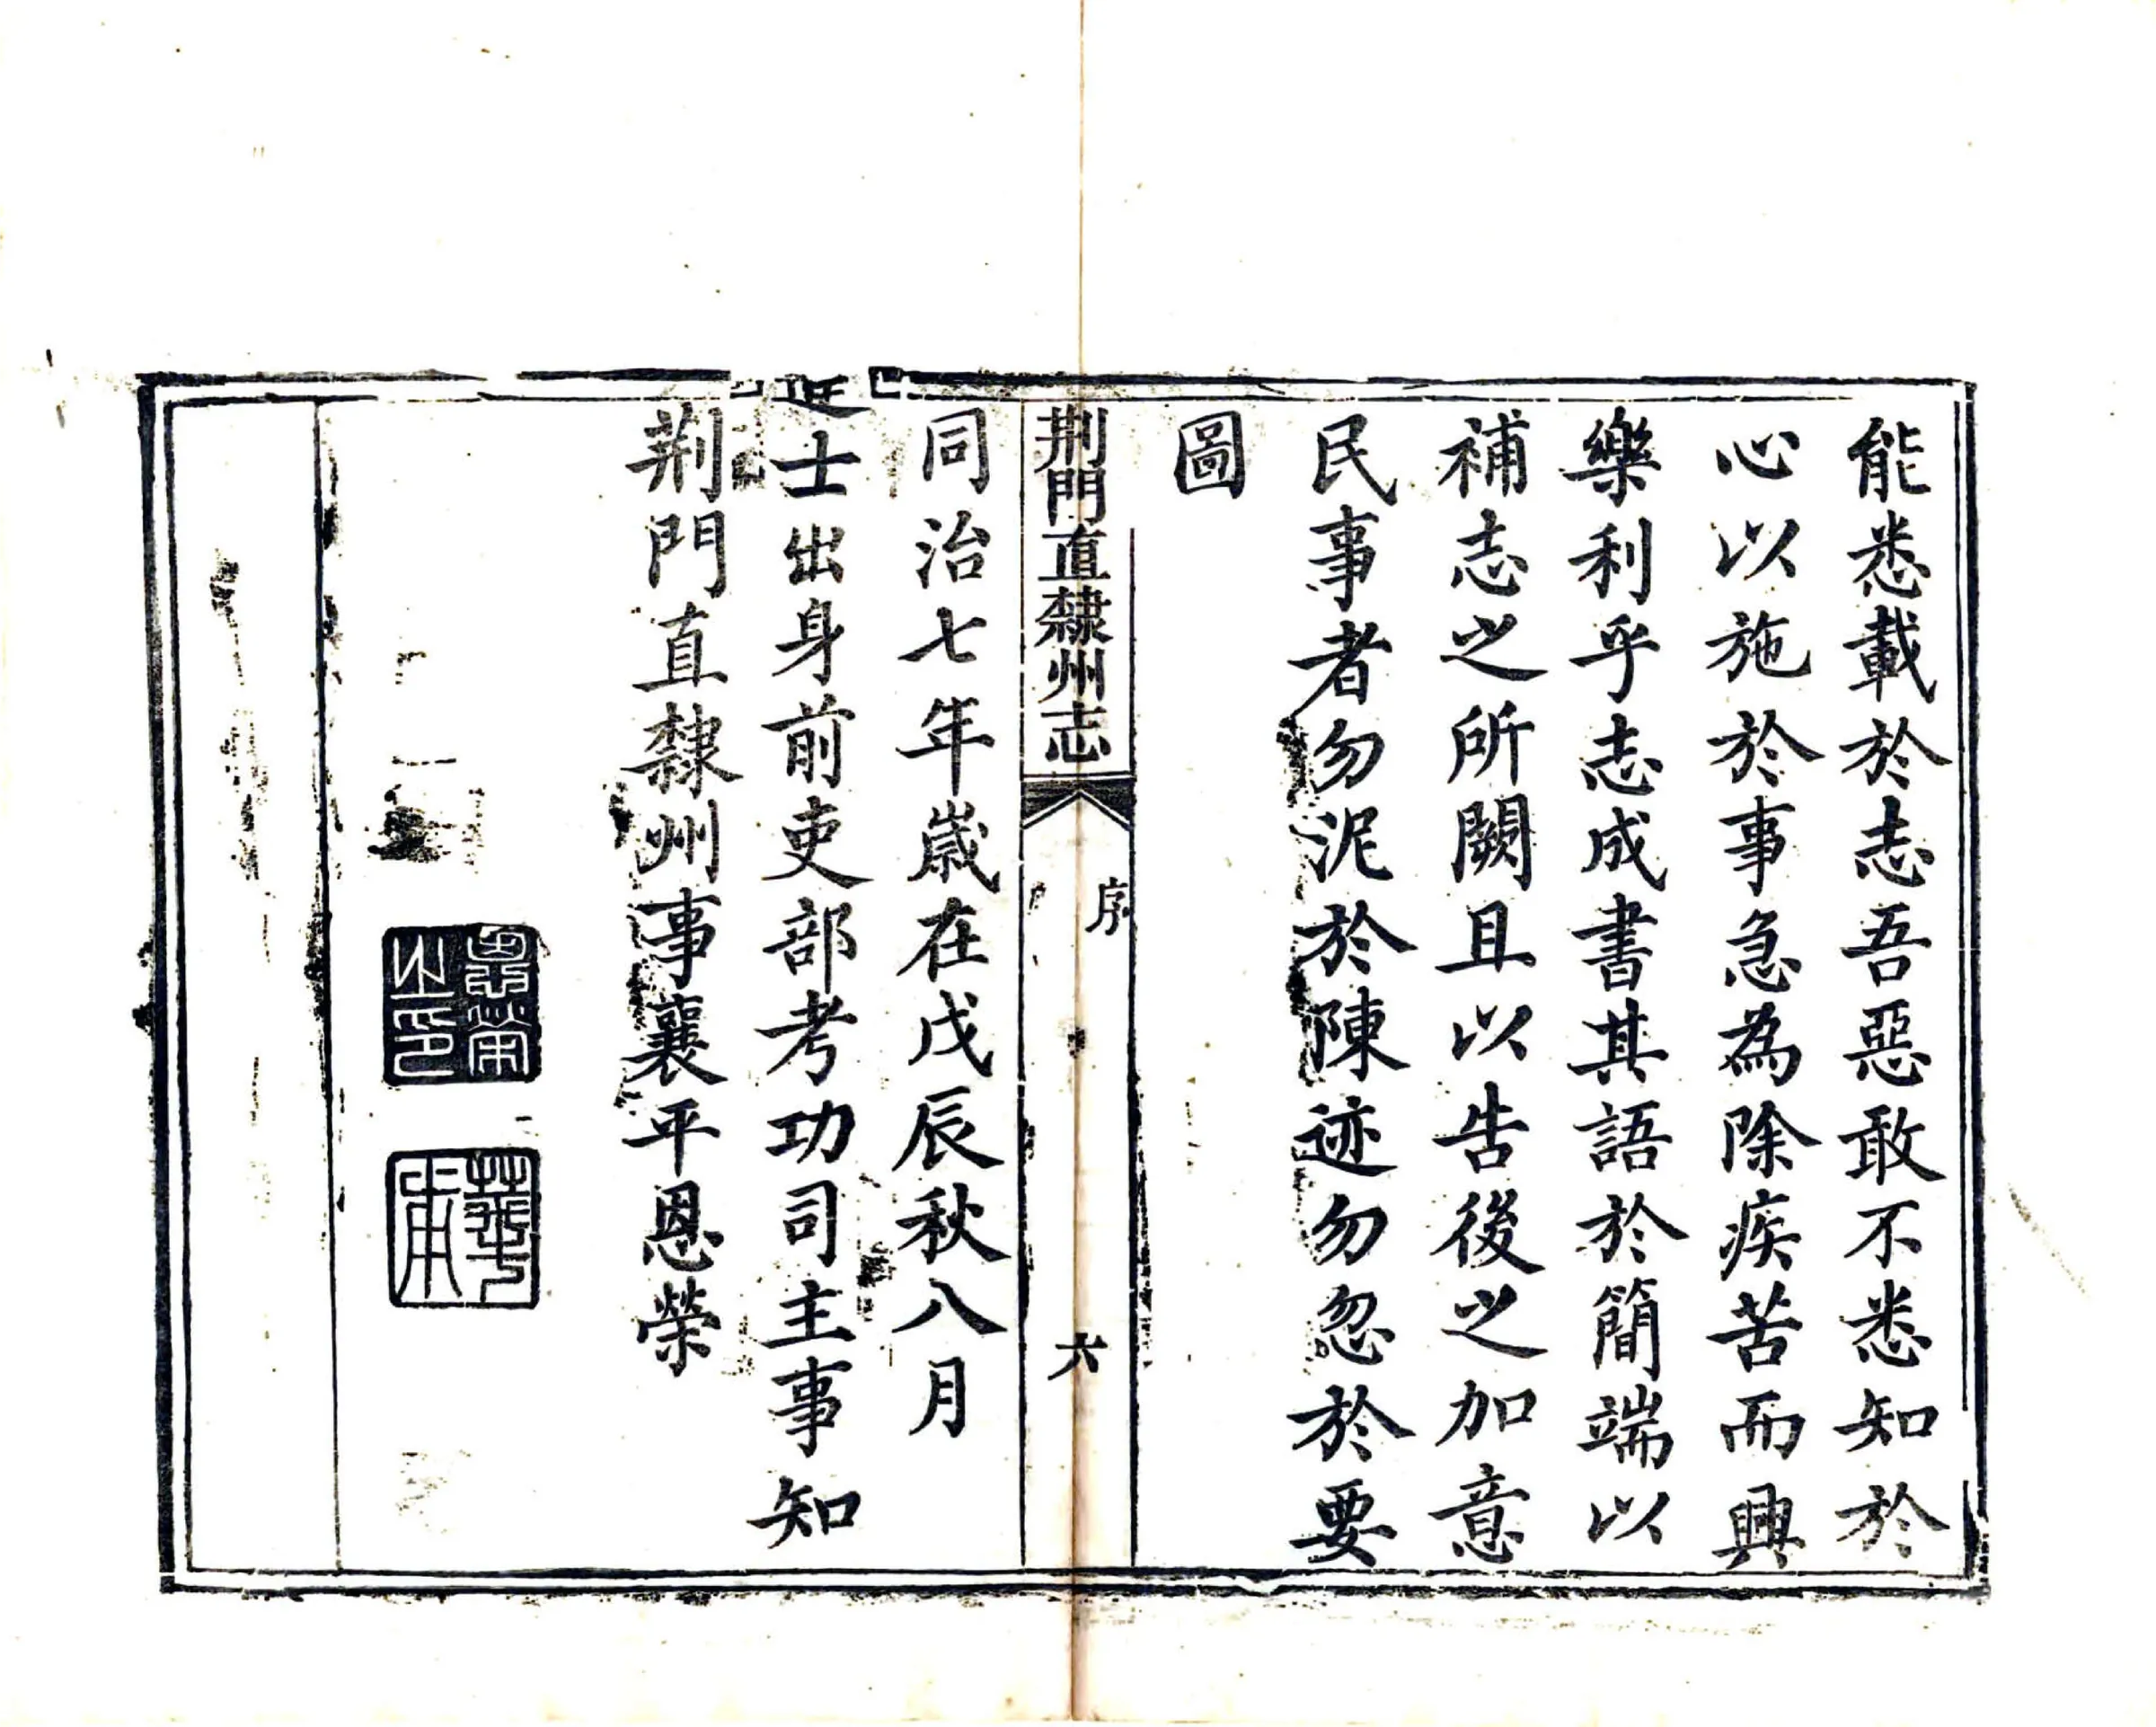 能悉載於志吾惡敢不悉知於
心以施於事急為除疾苦而興
樂利乎志成書其語於簡端以
補志之所闕且以告後之加意
民事者勿泥於陳迹勿忽於要
圖
荆門直隸州志
序
六
同治七年歲在戊辰秋八月
進士出身前吏部考功司主事知
荆門直隸州事襄平恩榮
恩榮之印
華甫